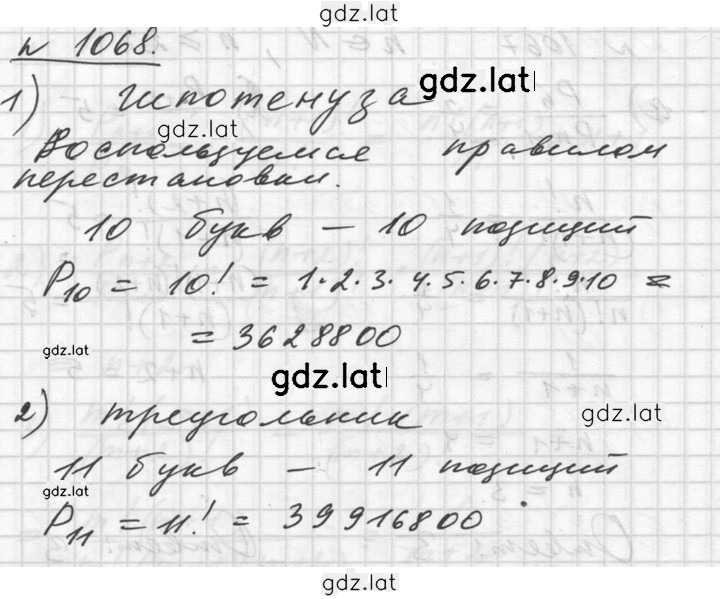 gdz.lat
№ 1068.
gdz.lat
1) гипотенуза
gdz.lat
Воспользуемся правилом
перестановки.
10 букв – 10 позиций
P10 = 10! = 1·2·3·4·5·6·7·8·9·10 =
= 3628800
gdz.lat
gdz.lat
2) треугольник
gdz.lat
11 букв – 11 позиций
gdz.lat
P11 = 11! = 39916800.
gdz.lat